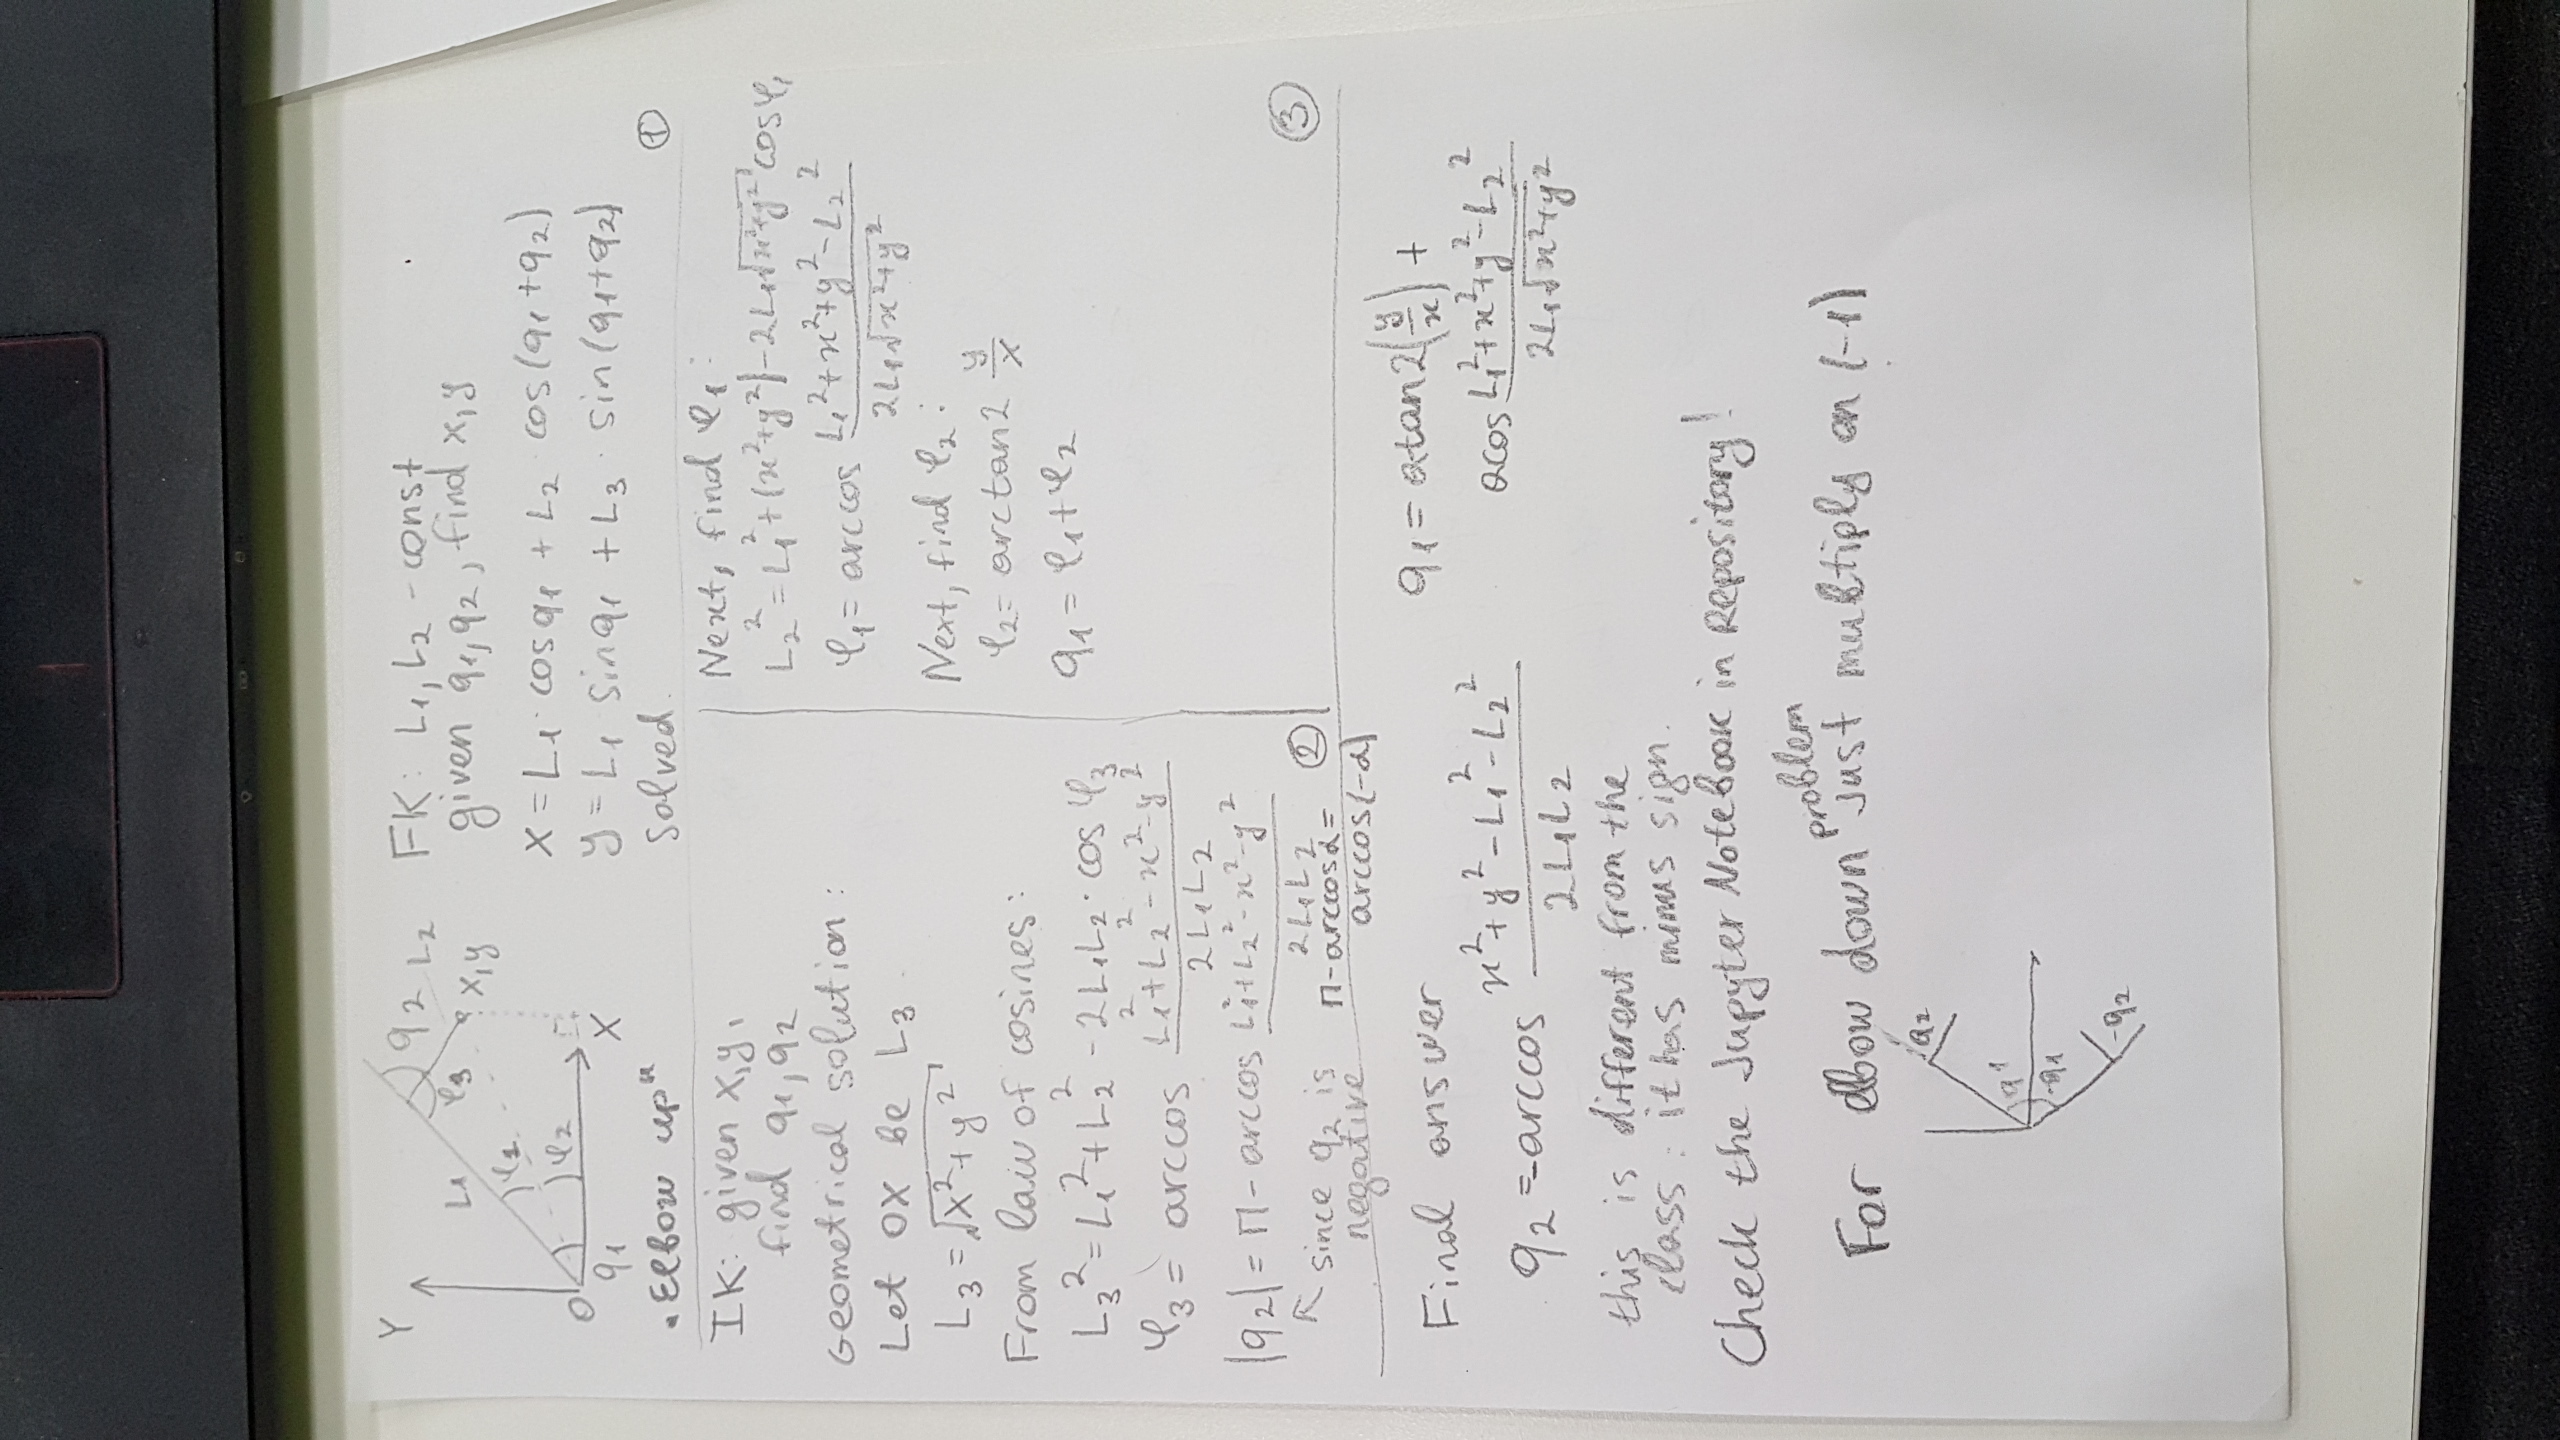 Y
q2 L2
L1 φ3 x,y
φ1
φ2
O
q1 X
"Elbow up"
FK: L1, L2 - const
given q1, q2, find x, y
x = L1 · cos q1 + L2 cos(q1+q2)
y = L1 sin q1 + L3 · sin(q1+q2)
solved.
①
IK: given x,y,
find q1, q2
Geometrical solution:
Let OX be L3
L3 = √(x²+y²)
From law of cosines:
L3² = L1² + L2² - 2L1L2 · cos φ3
φ3 = arccos (L1²+L2²-x²-y²)/(2L1L2)
|q2| = π - arccos (L1²+L2²-x²-y²)/(2L1L2)
↖ since q2 is
negative
π-arccosα=
arccos(-α)
②
Next, find φ1:
L2² = L1² + (x²+y²) - 2L1√(x²+y²) cosφ1
φ1 = arccos (L1²+x²+y²-L2²)/(2L1√(x²+y²))
Next, find φ2:
φ2 = arctan2 y/x
q1 = φ1+φ2
③
Final answer
q2 = -arccos (x²+y²-L1²-L2²)/(2L1L2)
this is different from the
class: it has minus sign.
q1 = atan2(y/x) +
acos (L1²+x²+y²-L2²)/(2L1√(x²+y²))
Check the Jupyter Notebook in Repository!
For elbow down problem just multiply on (-1)
q2
q1
-q1
-q2